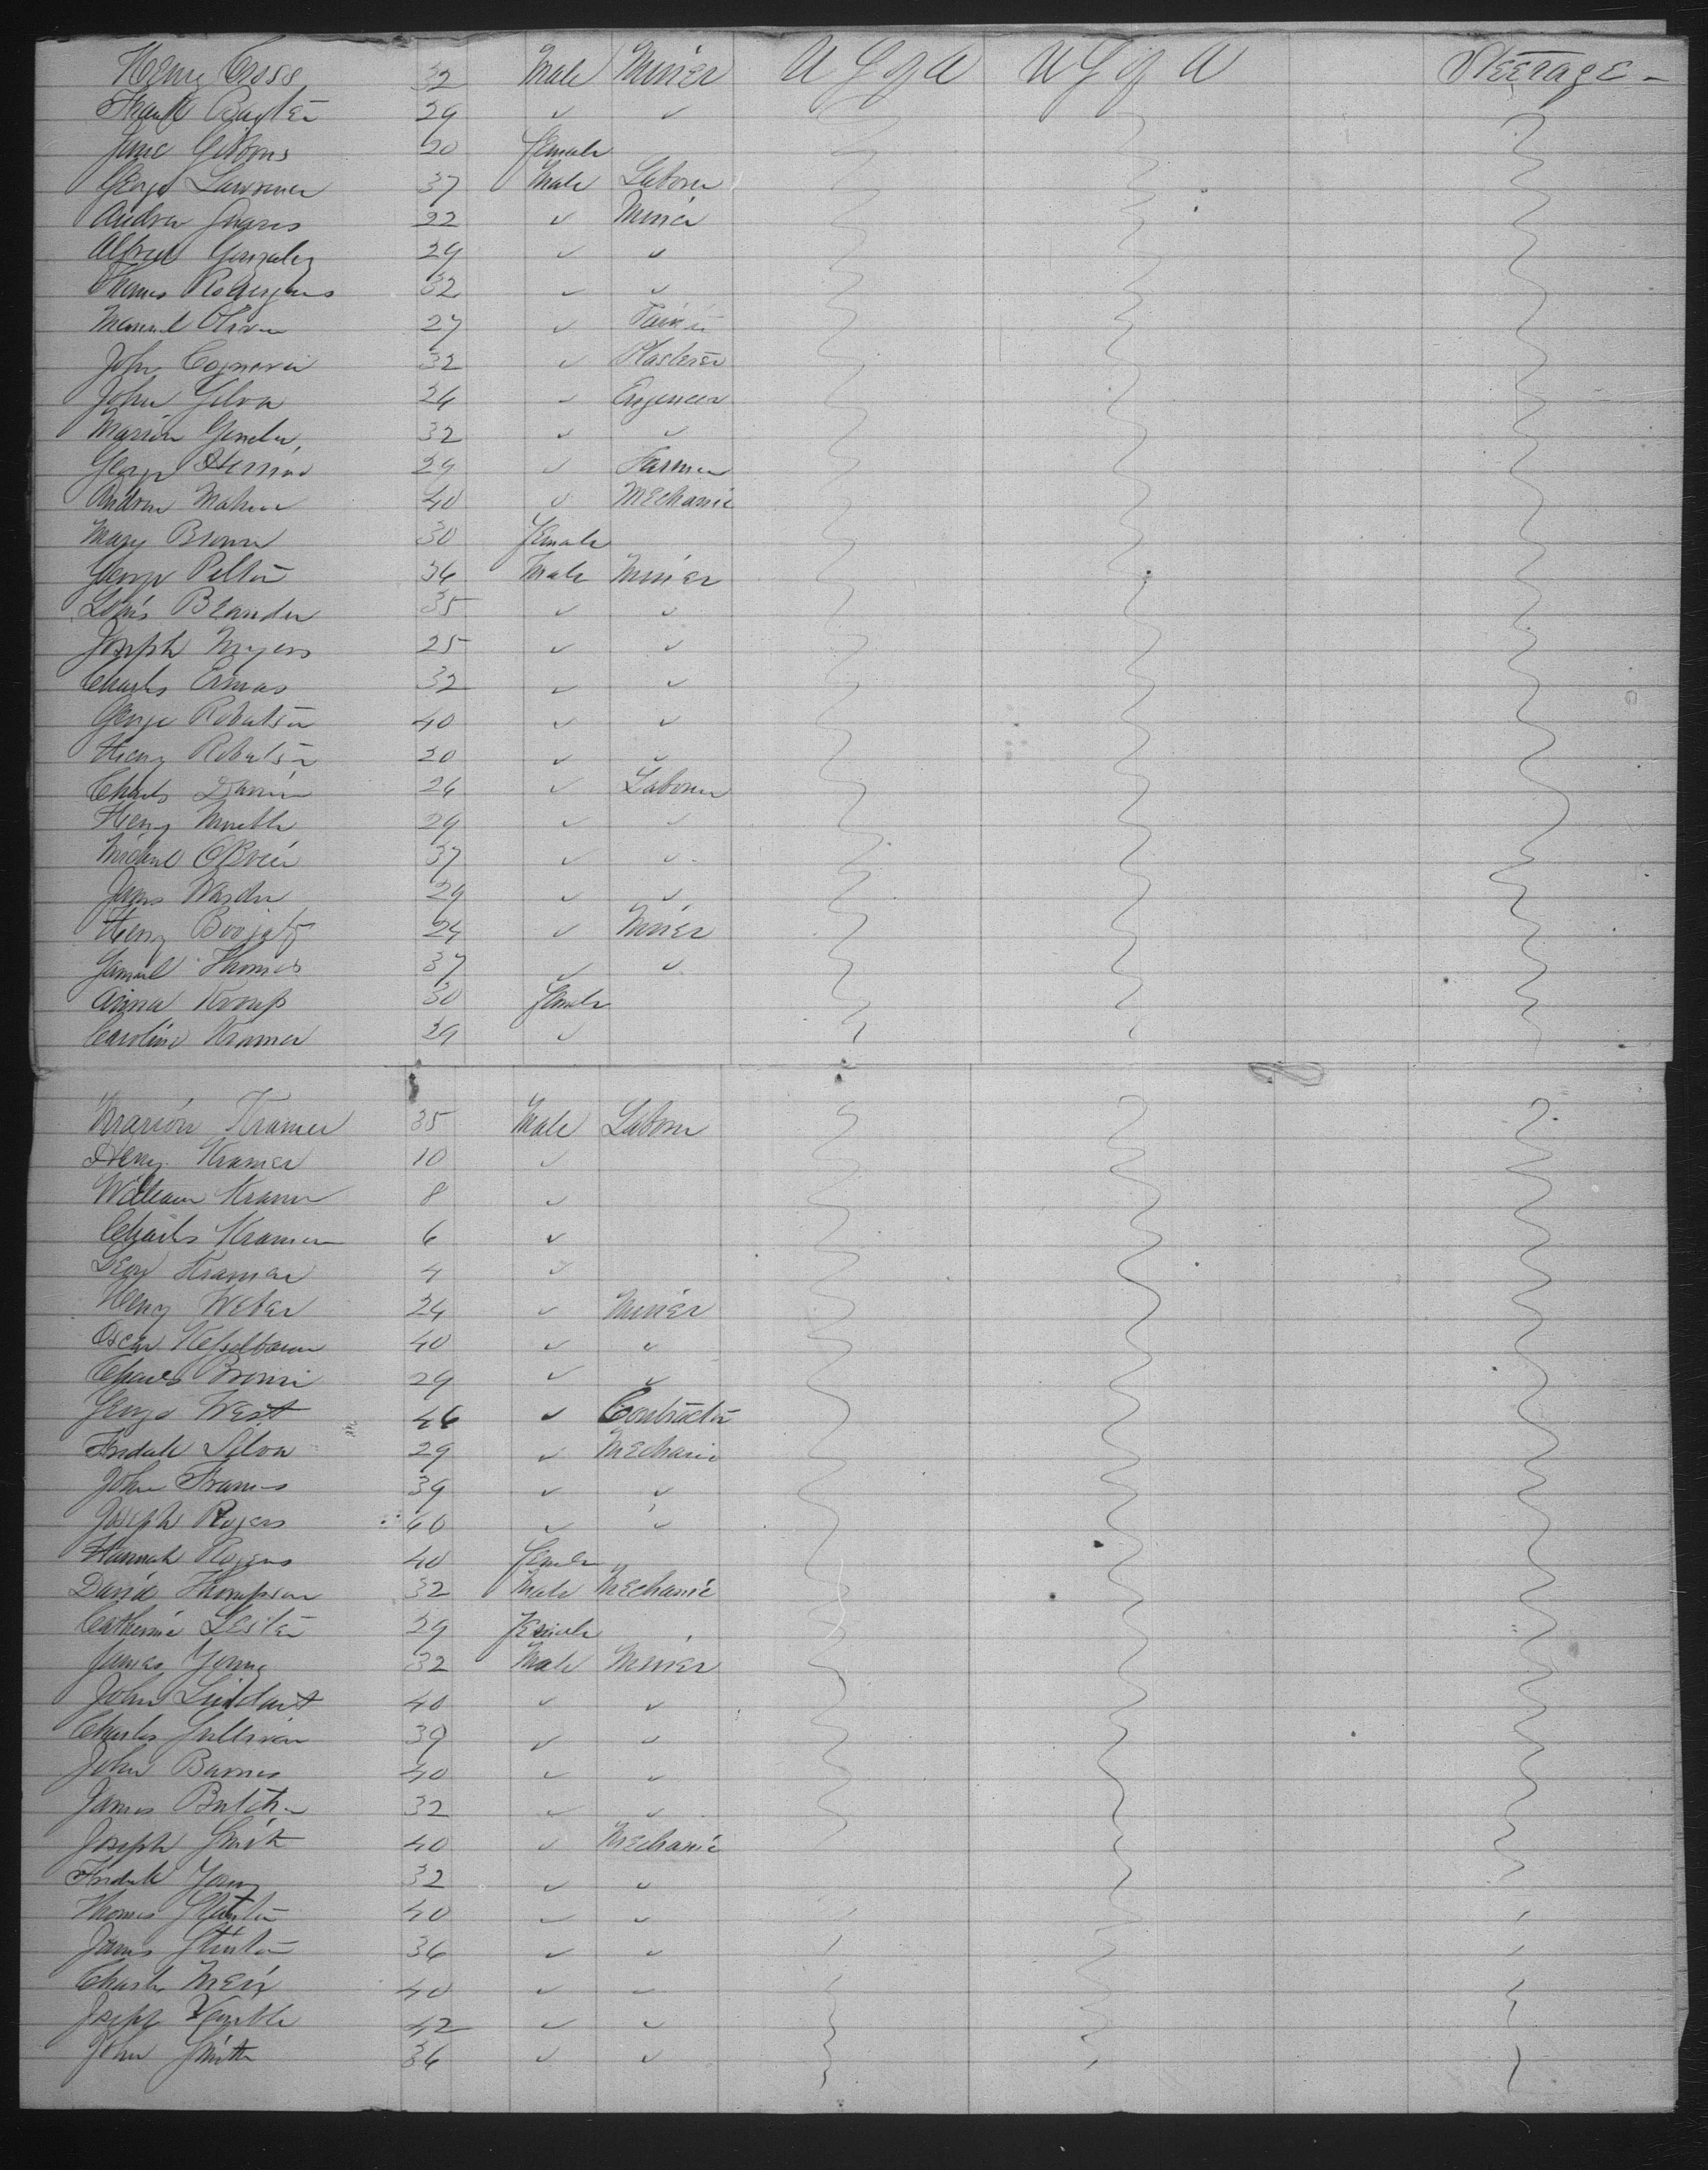 Henry Cross 32 Male Miner U S of A U S of A Steerage -
Frank Baxter 29 ✓ ✓
Jane Gibbons 20 Female
George Lawrence 37 Male Laborer
Andrew 22 ✓ Miner
Alfred Gonzalez 29 ✓ ✓
Thomas 32 ✓ ✓
Manuel 27 ✓
John 32 ✓ Plasterer
John Silva 24 ✓ Engineer
Marion 32 ✓ ✓
George 29 ✓ Farmer
Andrew 40 ✓ Mechanic
Mary Brown 30 Female
George Pelton 36 Male Miner
Louis 35 ✓ ✓
Joseph Myers 25 ✓ ✓
Charles 32 ✓ ✓
George Robertson 40 ✓ ✓
Henry Robertson 20 ✓ ✓
Charles 24 ✓ Laborer
Henry 29 ✓ ✓
Michael OBrien 37 ✓ ✓
James Warden 29 ✓ ✓
Henry 24 ✓ Miner
Samuel Thomas 37 ✓ ✓
Anna 30 Female
Caroline Kramer 29 ✓
Marion Kramer 35 Male Laborer
Henry Kramer 10 ✓
William Kramer 8 ✓
Charles Kramer 6 ✓
Leon Kramer 4 ✓
Henry Weber 24 ✓ Miner
Oscar Kesselbaum 40 ✓ ✓
Charles Brown 29 ✓ ✓
George West 46 ✓ Contractor
Fredrick Silva 29 ✓ Mechanic
John Francis 39 ✓ ✓
Joseph Rogers 40 ✓ ✓
Hannah Rogers 40 Female
David Thompson 32 Male Mechanic
Catherine Lester 29 Female
James Young 32 Male Miner
John 40 ✓ ✓
Charles Sullivan 39 ✓ ✓
John Barnes 40 ✓ ✓
James Butcher 32 ✓ ✓
Joseph Smith 40 ✓ Mechanic
Fredrick Young 32 ✓ ✓
Thomas 40 ✓ ✓
James 36 ✓ ✓
Charles 40 ✓ ✓
Joseph 42 ✓ ✓
John Smith 36 ✓ ✓